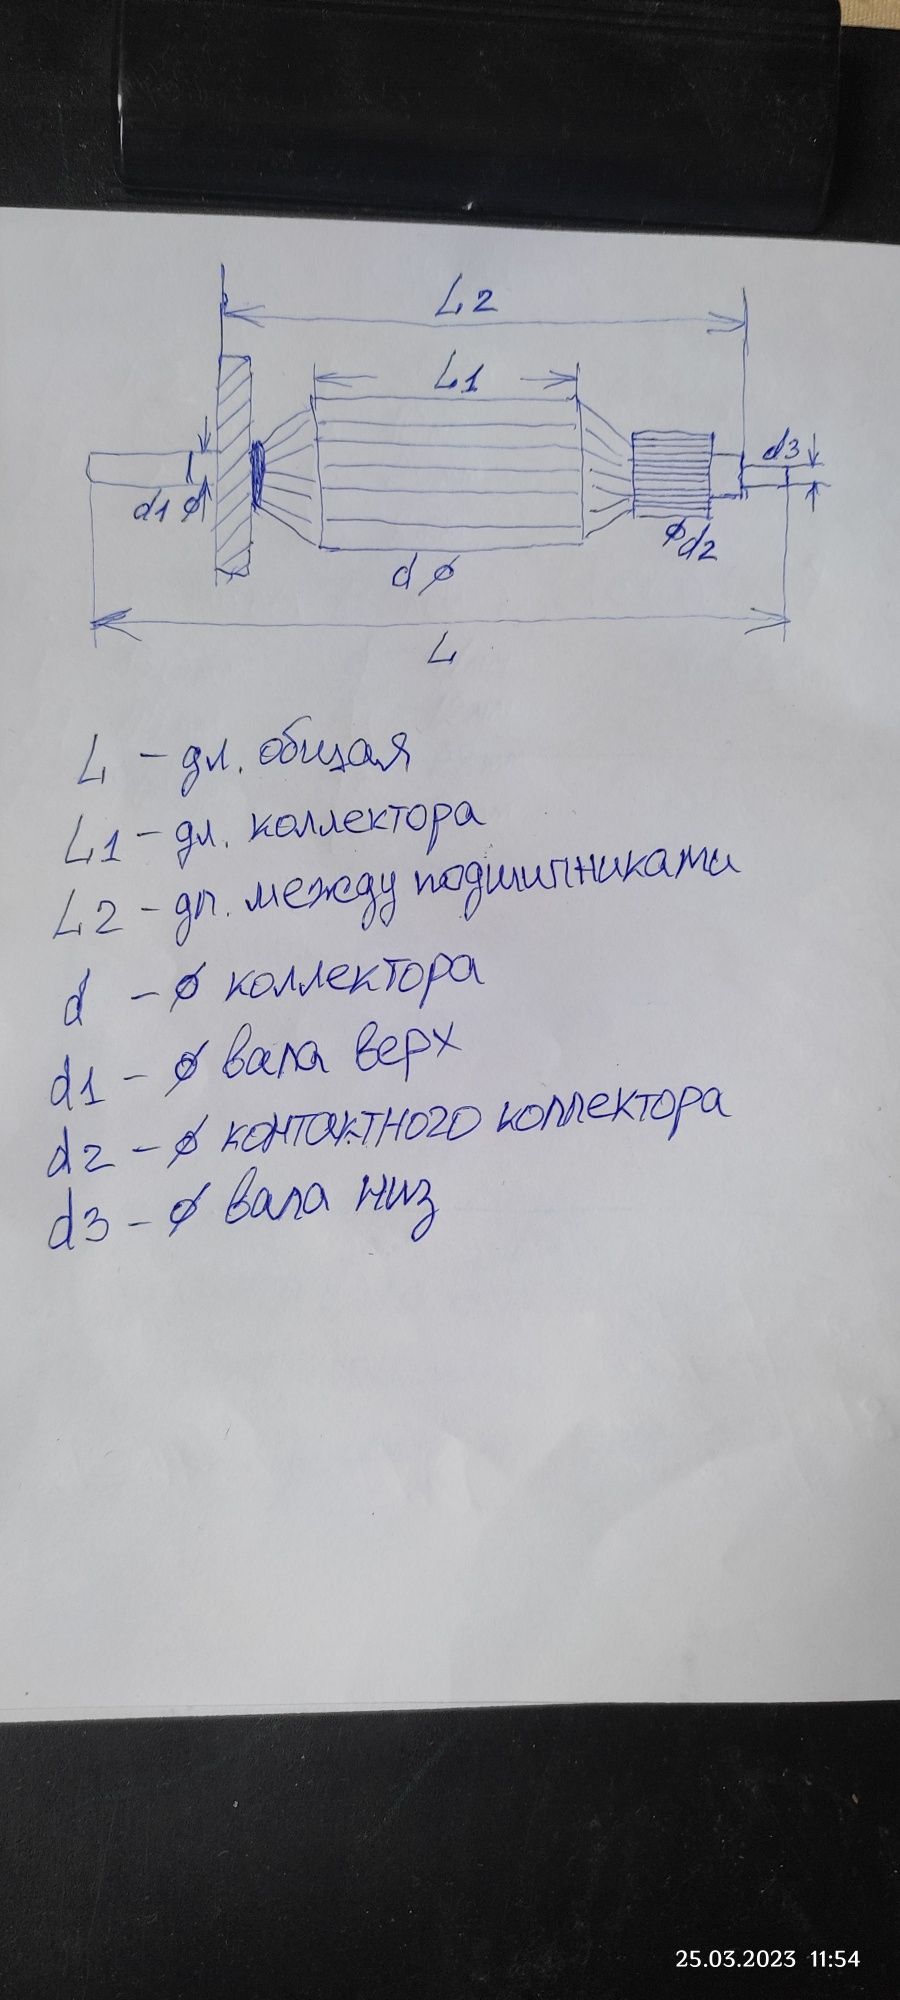 L2
L1
d3
d1 ϕ
ϕd2
d ϕ
L
L - дл. общая
L1 - дл. коллектора
L2 - дл. между подшипниками
d - ϕ коллектора
d1 - ϕ вала верх
d2 - ϕ контактного коллектора
d3 - ϕ вала низ
25.03.2023 11:54